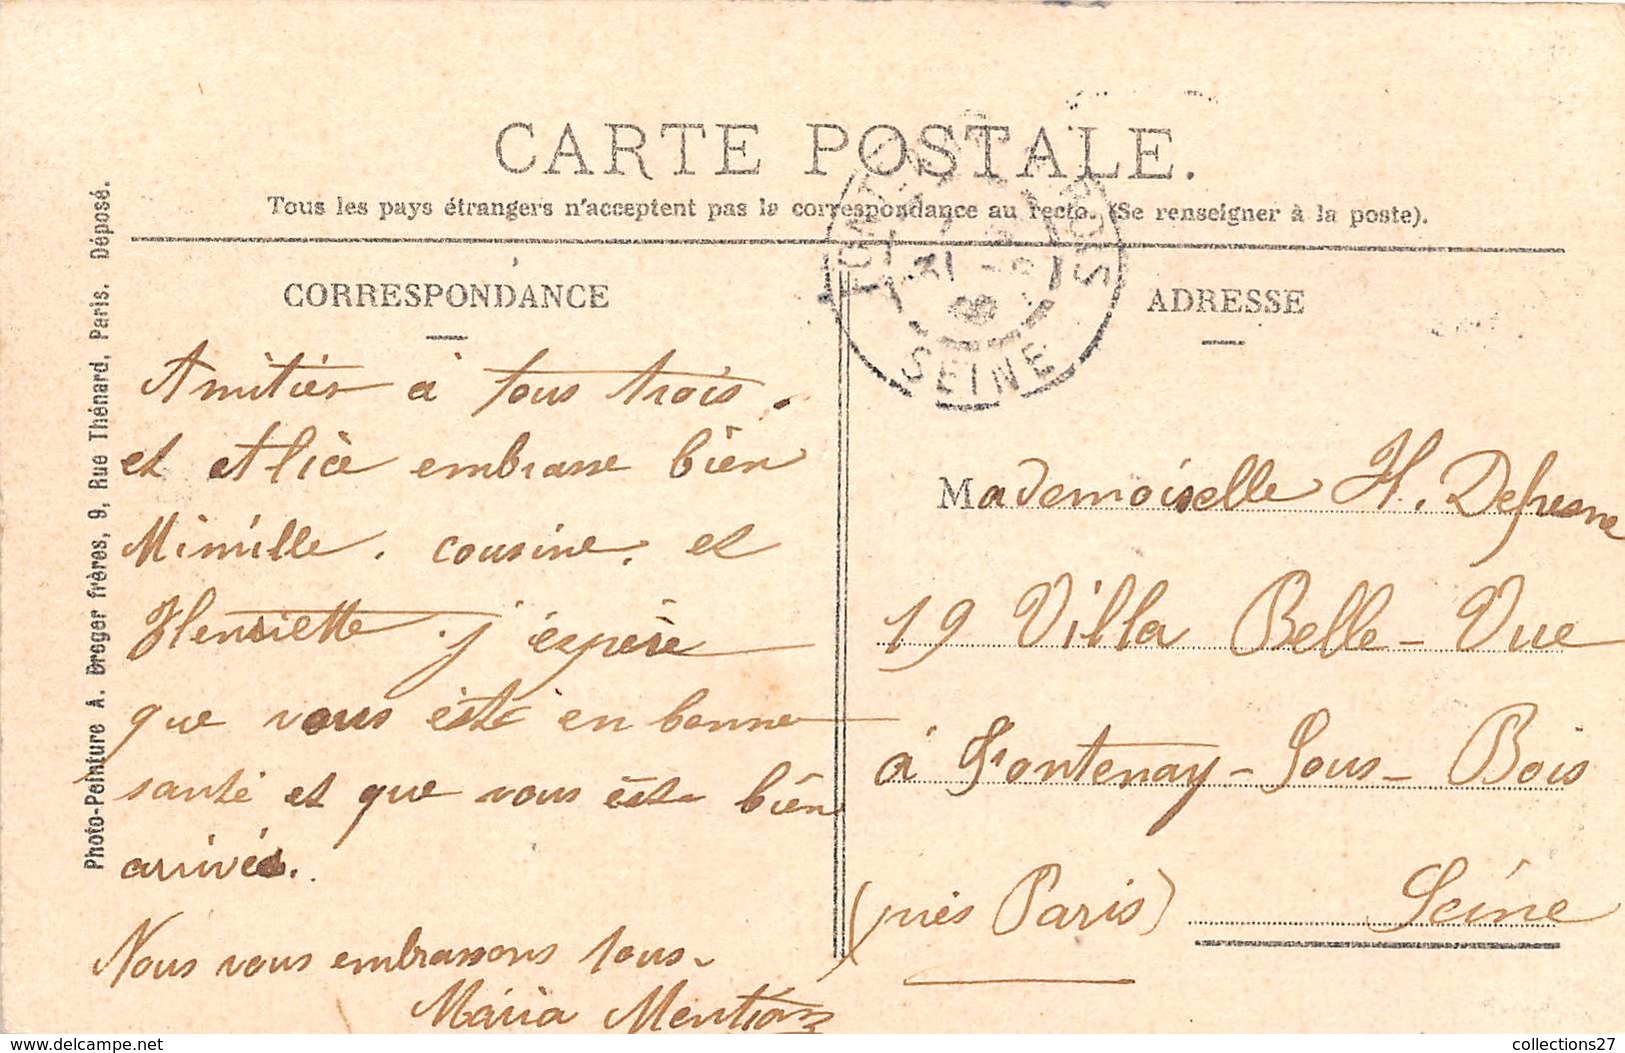 CARTE POSTALE.
Tous les pays étrangers n'acceptent pas la correspondance au recto. (Se renseigner à la poste).
CORRESPONDANCE
Amitiés à tous trois.
et Alice embrasse bien
Mimille. cousine. et
Henriette. j'espère
que vous éste en bonne
santé et que vous éste bien
arrivés.
Nous vous embrassons tous.
Maria
ADRESSE
Mademoiselle H. Defresne
19 Villa Belle-Vue
à Fontenay-Sous-Bois
(près Paris) Seine
SEINE
Photo-Peinture A. Breger frères, 9, Rue Thénard, Paris. Déposé.
collections27